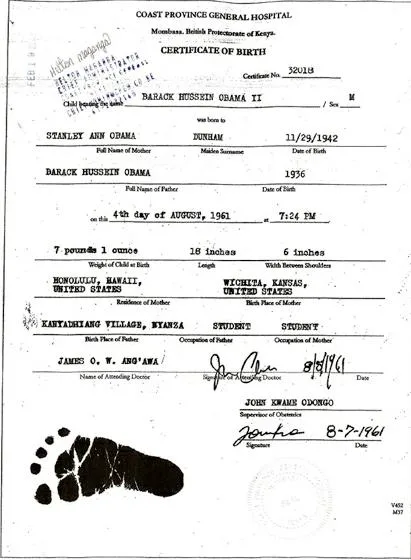 COAST PROVINCE GENERAL HOSPITAL
Mombasa, British Protectorate of Kenya.
CERTIFICATE OF BIRTH
Certificate No. 32018
FEB 1
Child bearing the name BARACK HUSSEIN OBAMA II / Sex M
was born to
STANLEY ANN OBAMA DUNHAM 11/29/1942
Full Name of Mother Maiden Surname Date of Birth
BARACK HUSSEIN OBAMA 1936
Full Name of Father Date of Birth
on this 4th day of AUGUST, 1961 at 7:24 PM
7 pounds 1 ounce 18 inches 6 inches
Weight of Child at Birth Length Width Between Shoulders
HONOLULU, HAWAII, WICHITA, KANSAS,
UNITED STATES UNITED STATES
Residence of Mother Birth Place of Mother
KANYADHIANG VILLAGE, NYANZA STUDENT STUDENT
Birth Place of Father Occupation of Father Occupation of Mother
JAMES O. W. ANG'AWA 8/8/1961
Name of Attending Doctor Signature of Attending Doctor Date
JOHN KWAME ODONGO
Supervisor of Obstetrics
8-7-1961
Signature Date
V452
M37